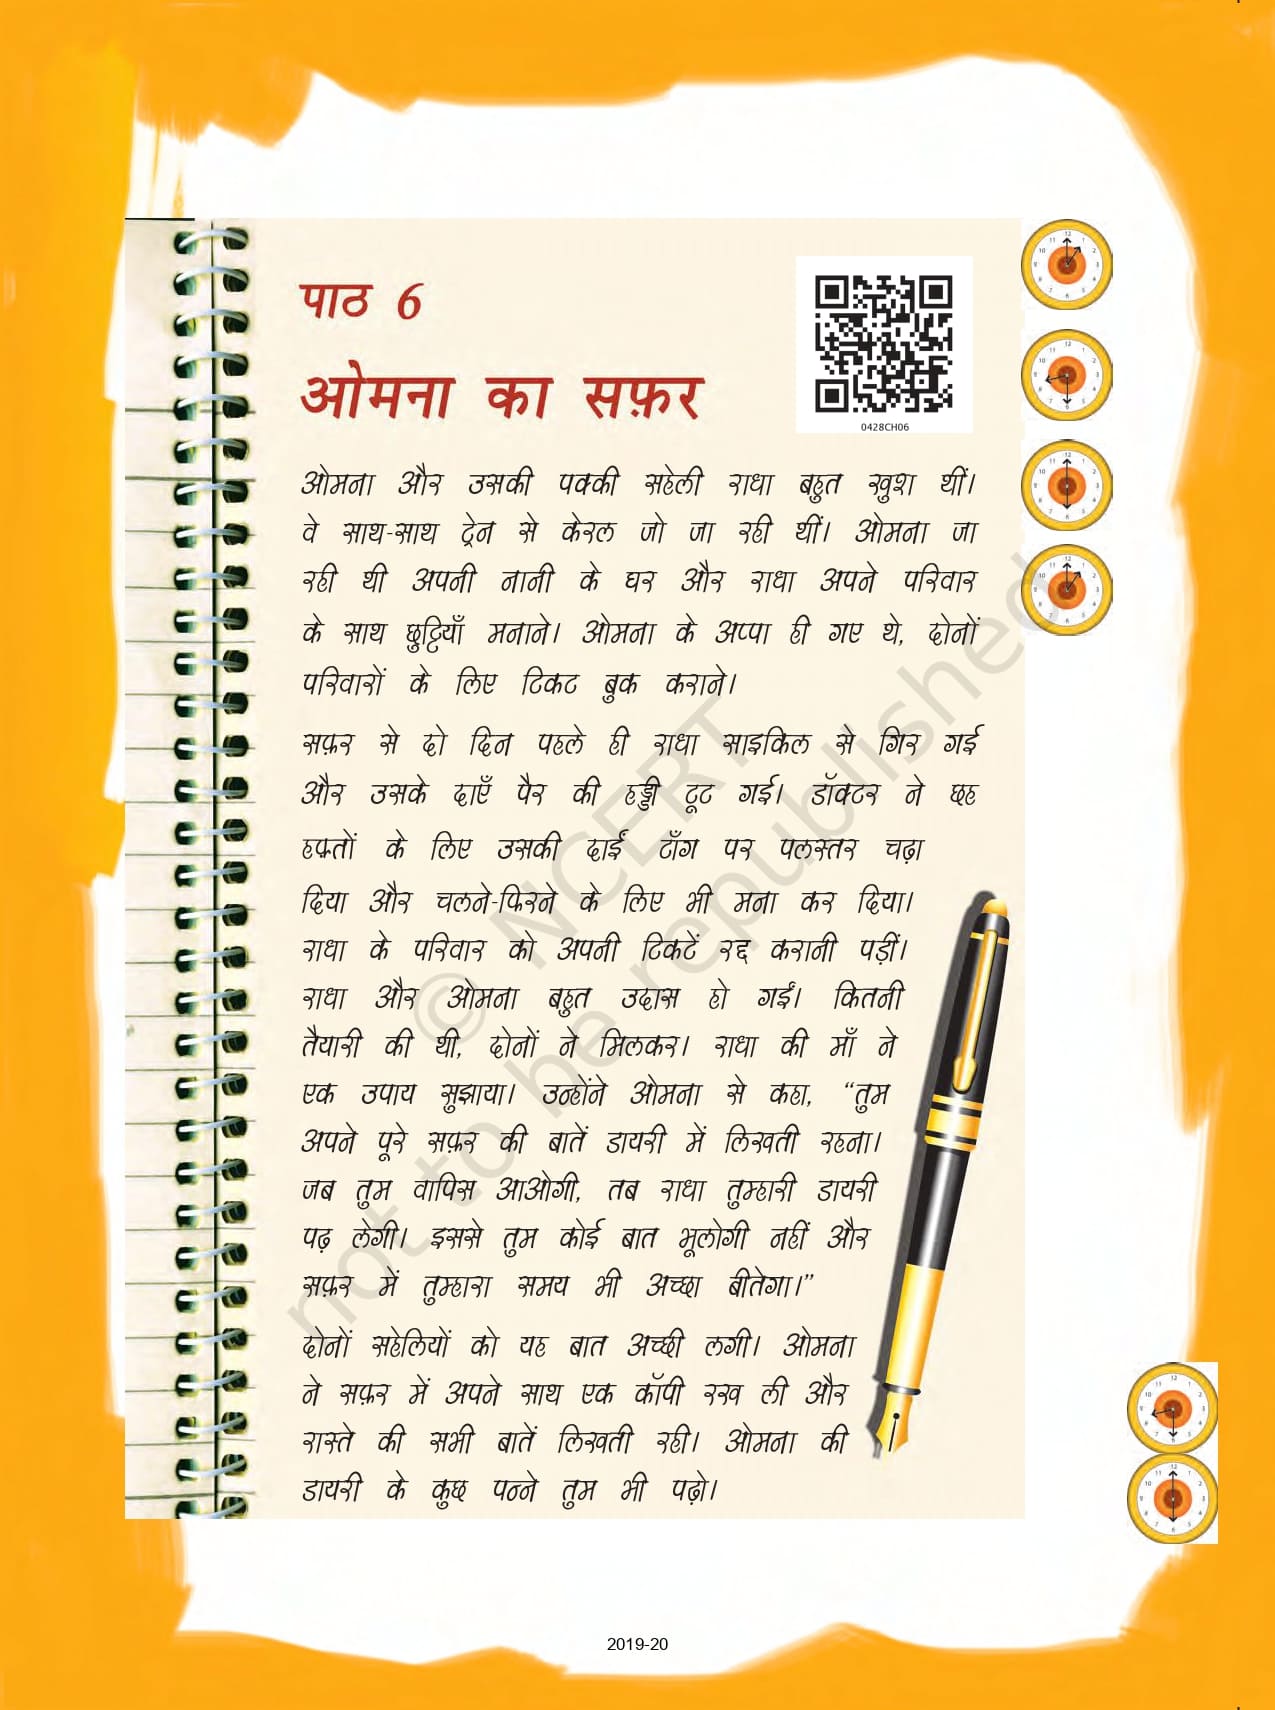 पाठ 6
ओमना का सफ़र
0428CH06
ओमना और उसकी पक्की सहेली राधा बहुत खुश थीं।
वे साथ-साथ ट्रेन से केरल जो जा रही थीं। ओमना जा
रही थी अपनी नानी के घर और राधा अपने परिवार
के साथ छुट्टियाँ मनाने। ओमना के अप्पा ही गए थे, दोनों
परिवारों के लिए टिकट बुक कराने।
सफ़र से दो दिन पहले ही राधा साइकिल से गिर गई
और उसके दाएँ पैर की हड्डी टूट गई। डॉक्टर ने छह
हफ़्तों के लिए उसकी दाईं टाँग पर पलस्तर चढ़ा
दिया और चलने-फिरने के लिए भी मना कर दिया।
राधा के परिवार को अपनी टिकटें रद्द करानी पड़ीं।
राधा और ओमना बहुत उदास हो गईं। कितनी
तैयारी की थी, दोनों ने मिलकर। राधा की माँ ने
एक उपाय सुझाया। उन्होंने ओमना से कहा, “तुम
अपने पूरे सफ़र की बातें डायरी में लिखती रहना।
जब तुम वापिस आओगी, तब राधा तुम्हारी डायरी
पढ़ लेगी। इससे तुम कोई बात भूलोगी नहीं और
सफ़र में तुम्हारा समय भी अच्छा बीतेगा।”
दोनों सहेलियों को यह बात अच्छी लगी। ओमना
ने सफ़र में अपने साथ एक कॉपी रख ली और
रास्ते की सभी बातें लिखती रही। ओमना की
डायरी के कुछ पन्ने तुम भी पढ़ो।
© NCERT
not to be republished
2019-20